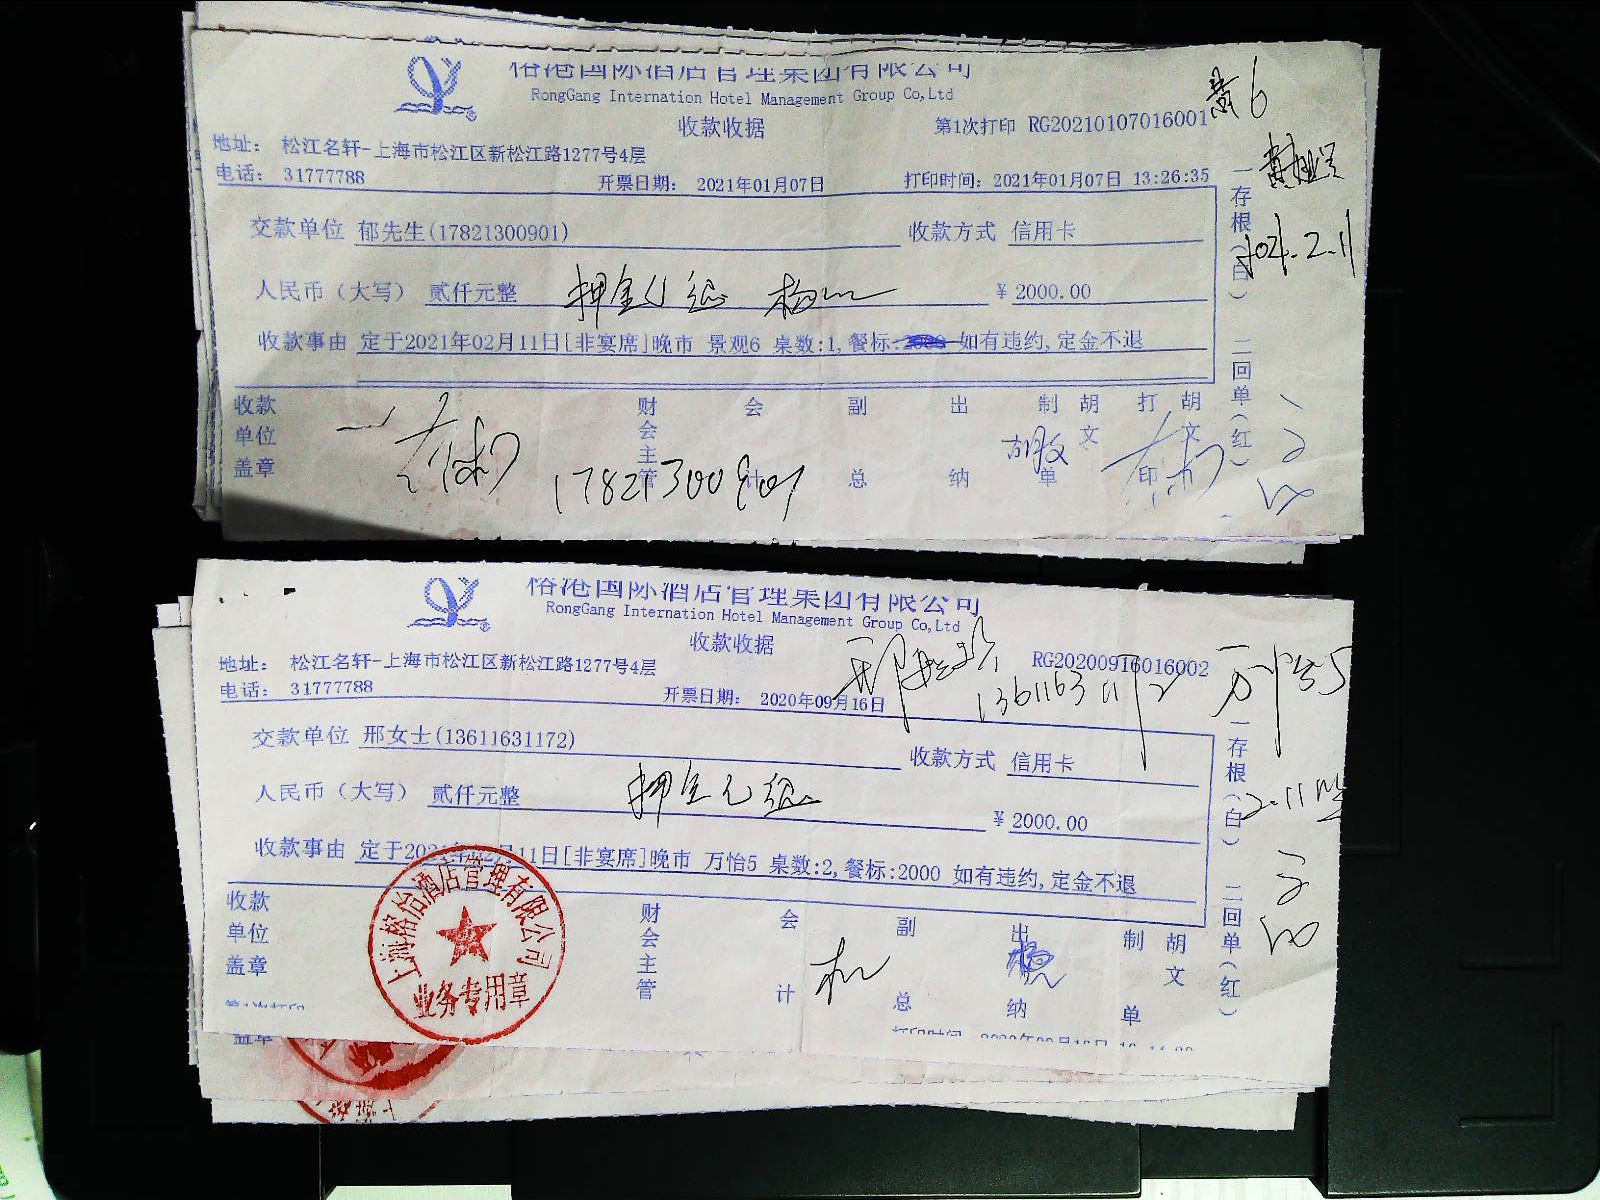 榕港国际酒店管理集团有限公司
RongGang Internation Hotel Management Group Co,Ltd
收款收据
第1次打印 RG20210107016001
地址： 松江名轩-上海市松江区新松江路1277号4层
电话： 31777788
开票日期： 2021年01月07日
打印时间：2021年01月07日 13:26:35
交款单位 郁先生(17821300901)
收款方式 信用卡
人民币（大写） 贰仟元整
¥ 2000.00
收款事由 定于2021年02月11日[非宴席]晚市 景观6 桌数:1,餐标:2000 如有违约,定金不退
收款单位盖章
财会主管
会计
副总
出纳
制单
胡文
打印
胡文
17821300901
一存根(白) 二回单(红)
2021.2.11
榕港国际酒店管理集团有限公司
RongGang Internation Hotel Management Group Co,Ltd
收款收据
RG20200916016002
地址： 松江名轩-上海市松江区新松江路1277号4层
电话： 31777788
开票日期： 2020年09月16日
13611631172
交款单位 邢女士(13611631172)
收款方式 信用卡
人民币（大写） 贰仟元整
¥ 2000.00
收款事由 定于2021年02月11日[非宴席]晚市 万怡5 桌数:2,餐标:2000 如有违约,定金不退
收款单位盖章
财会主管
会计
副总
出纳
制单
胡文
一存根(白) 二回单(红)
上海榕怡酒店管理有限公司
业务专用章